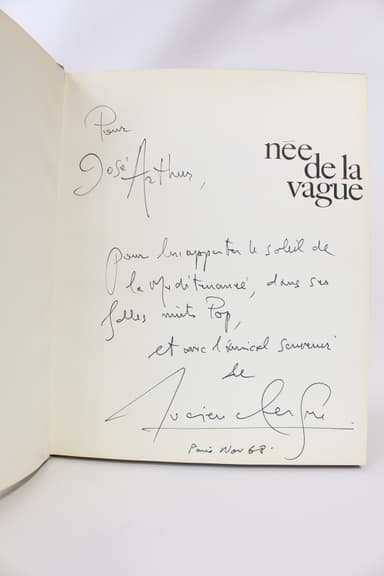 Pour
José Arthur,
née
de la
vague
pour lui apporter le soleil de
la Méditerranée, dans ses
folles nuits Pop,
et avec l'amical souvenir
de
Lucien Clergue.
Paris Nov 68.